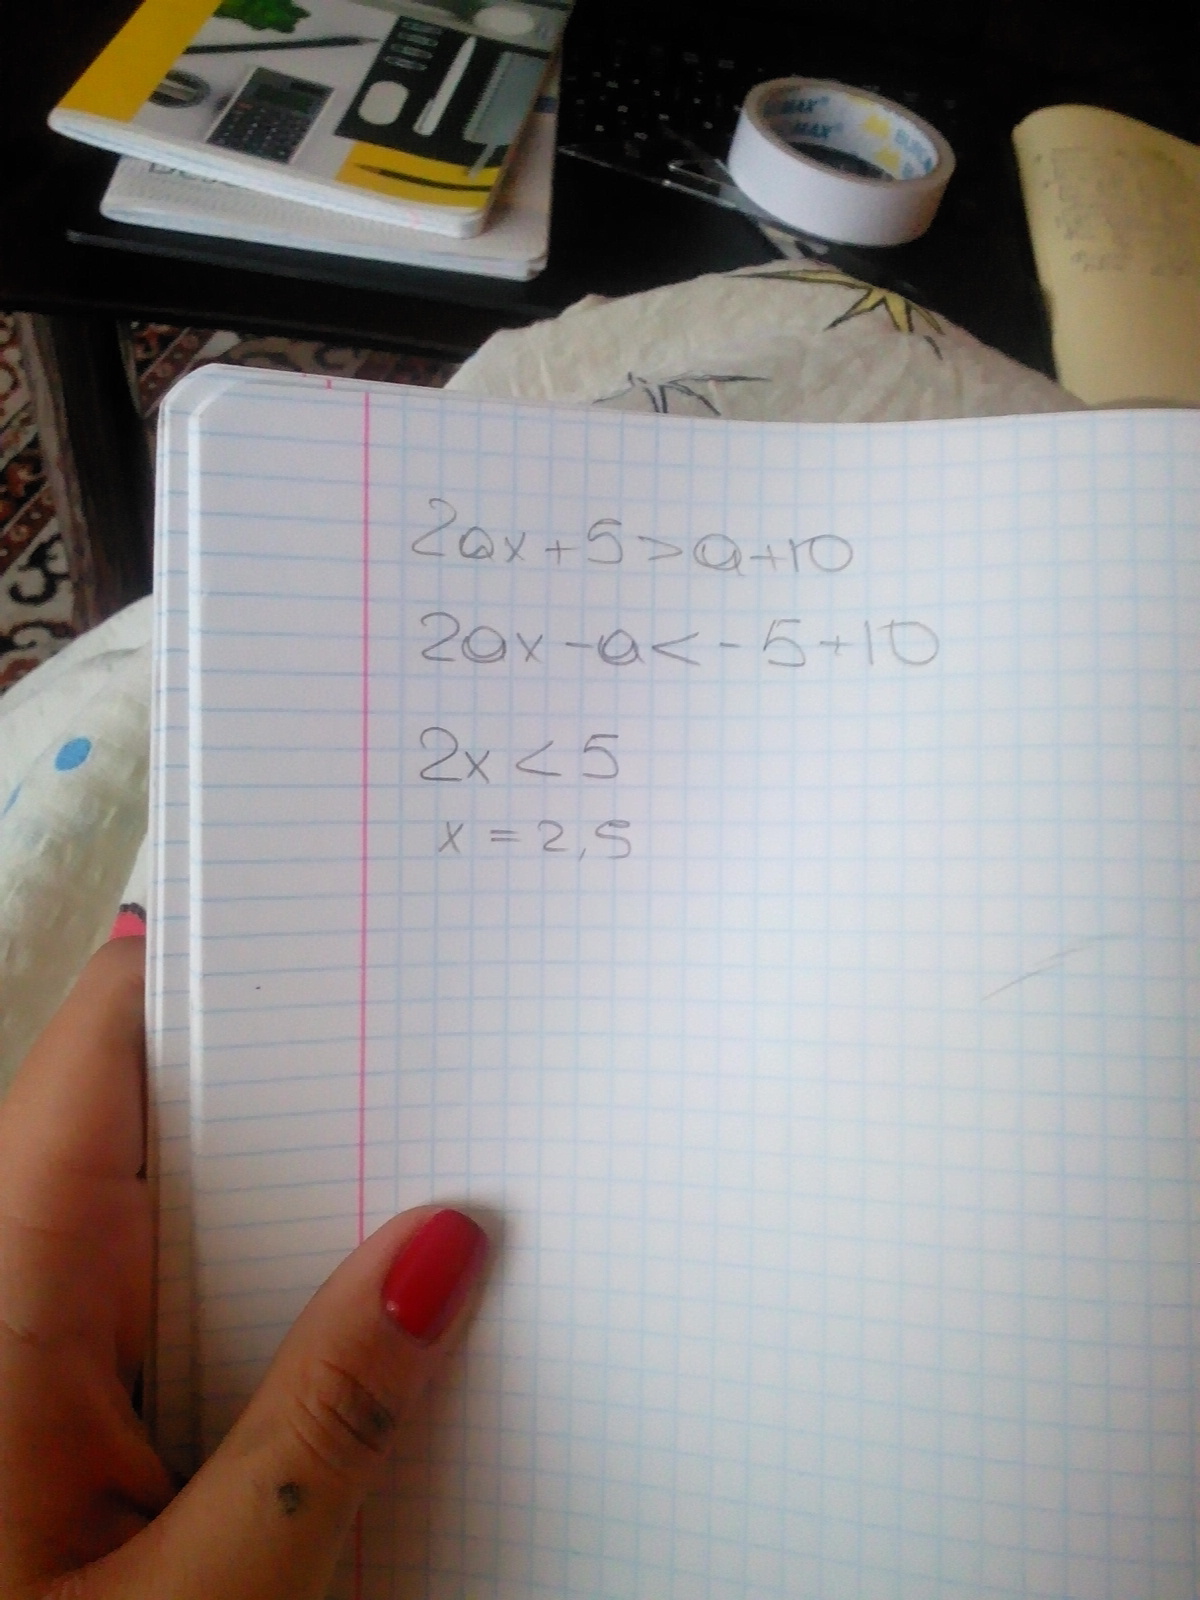 MAX
MAX
2ax+5>a+10
2ax-a<-5+10
2x<5
x=2,5